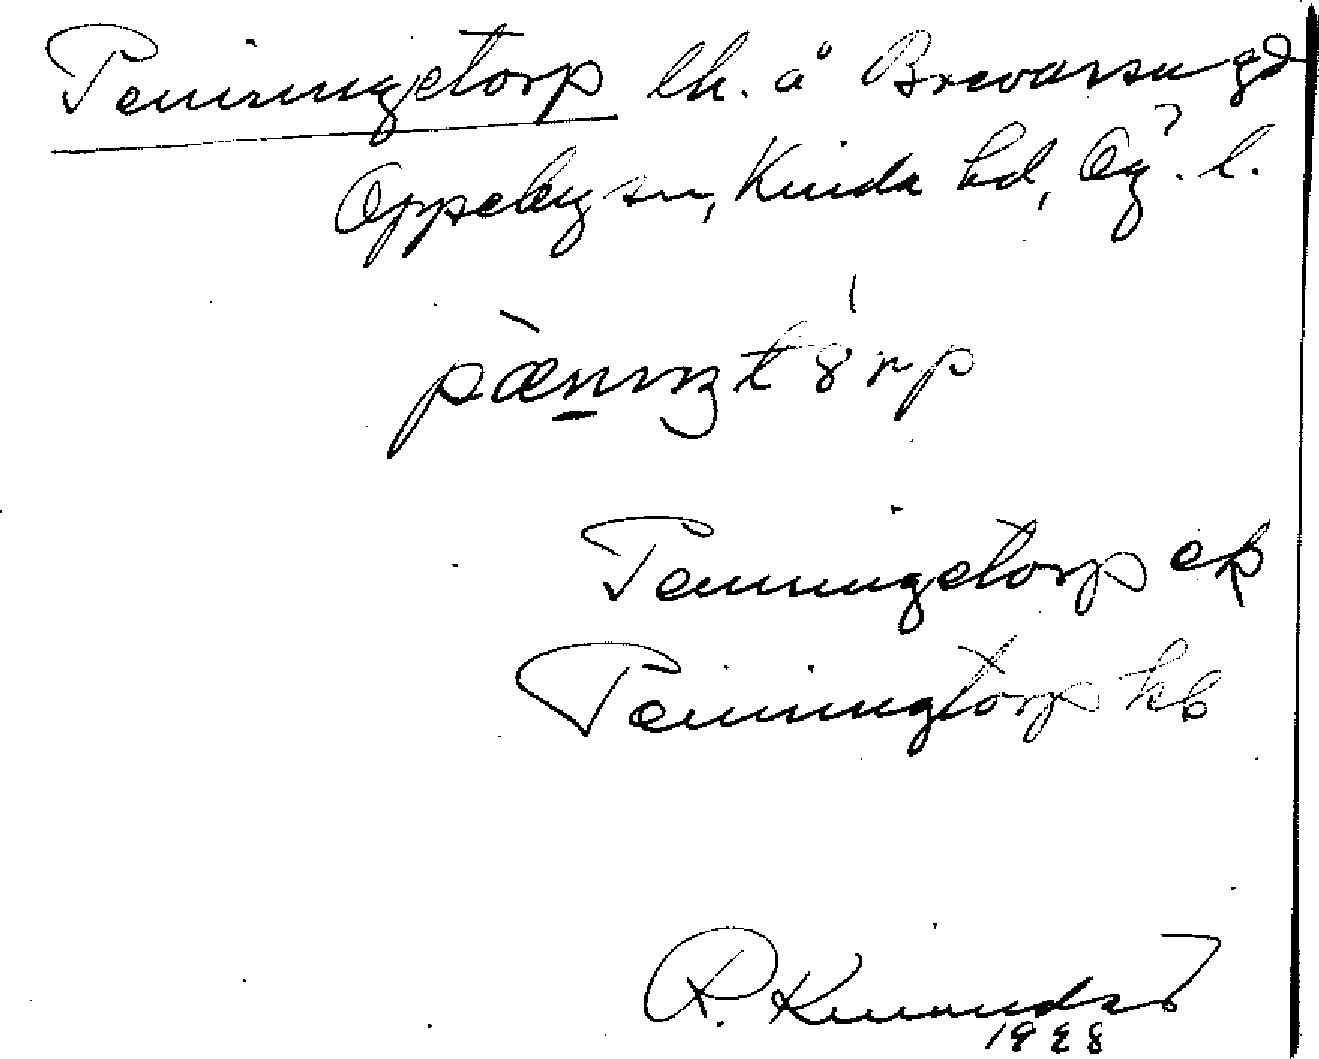 Penningetorp lh. å Brevarsu gd
Oppeby sn, Kinda hd, Ög. l.
pænıŋtɷrp
Penningetorp ek
Penningtorp kb
R.
1928